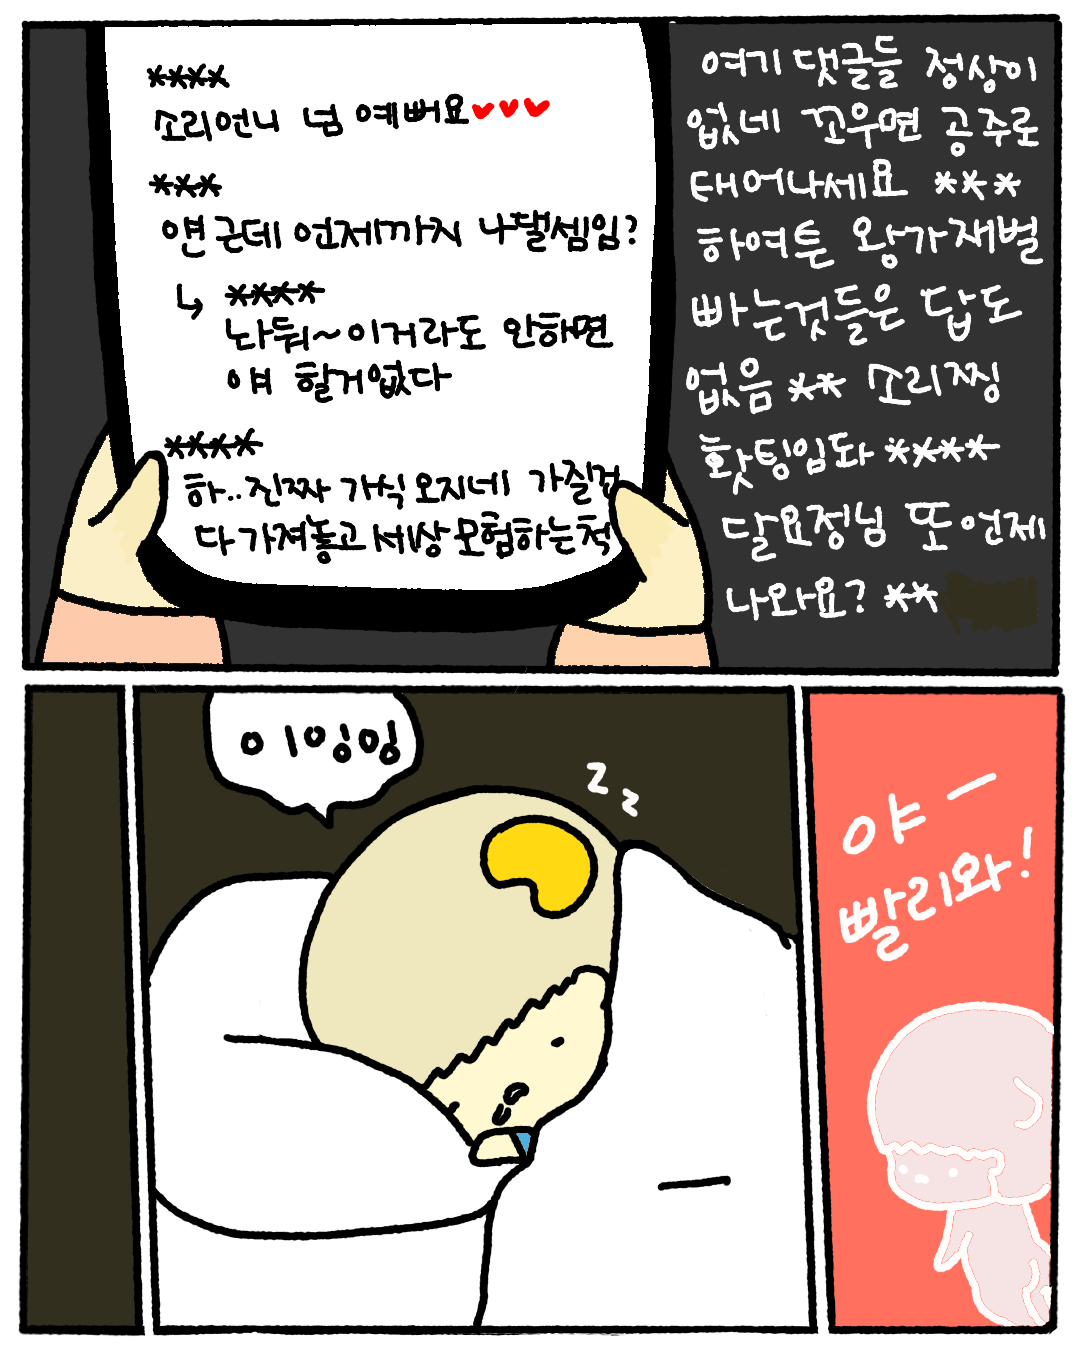 ****
소리언니 넘 예뻐요♥♥♥
***
얜 근데 언제까지 나댈셈임?
↳ ****
놔둬~이거라도 안하면
얘 할거없다
****
하..진짜 가식오지네 가질건
다가져놓고 세상모험하는척
여기 댓글들 정상이
없네 꼬우면 공주로
태어나세요 ***
하여튼 왕가재벌
빠는것들은 답도
없음 ** 소리찡
홧팅임돠 ****
달요정님 또 언제
나와요? **
이잉잉
z
z
야-
빨리와!